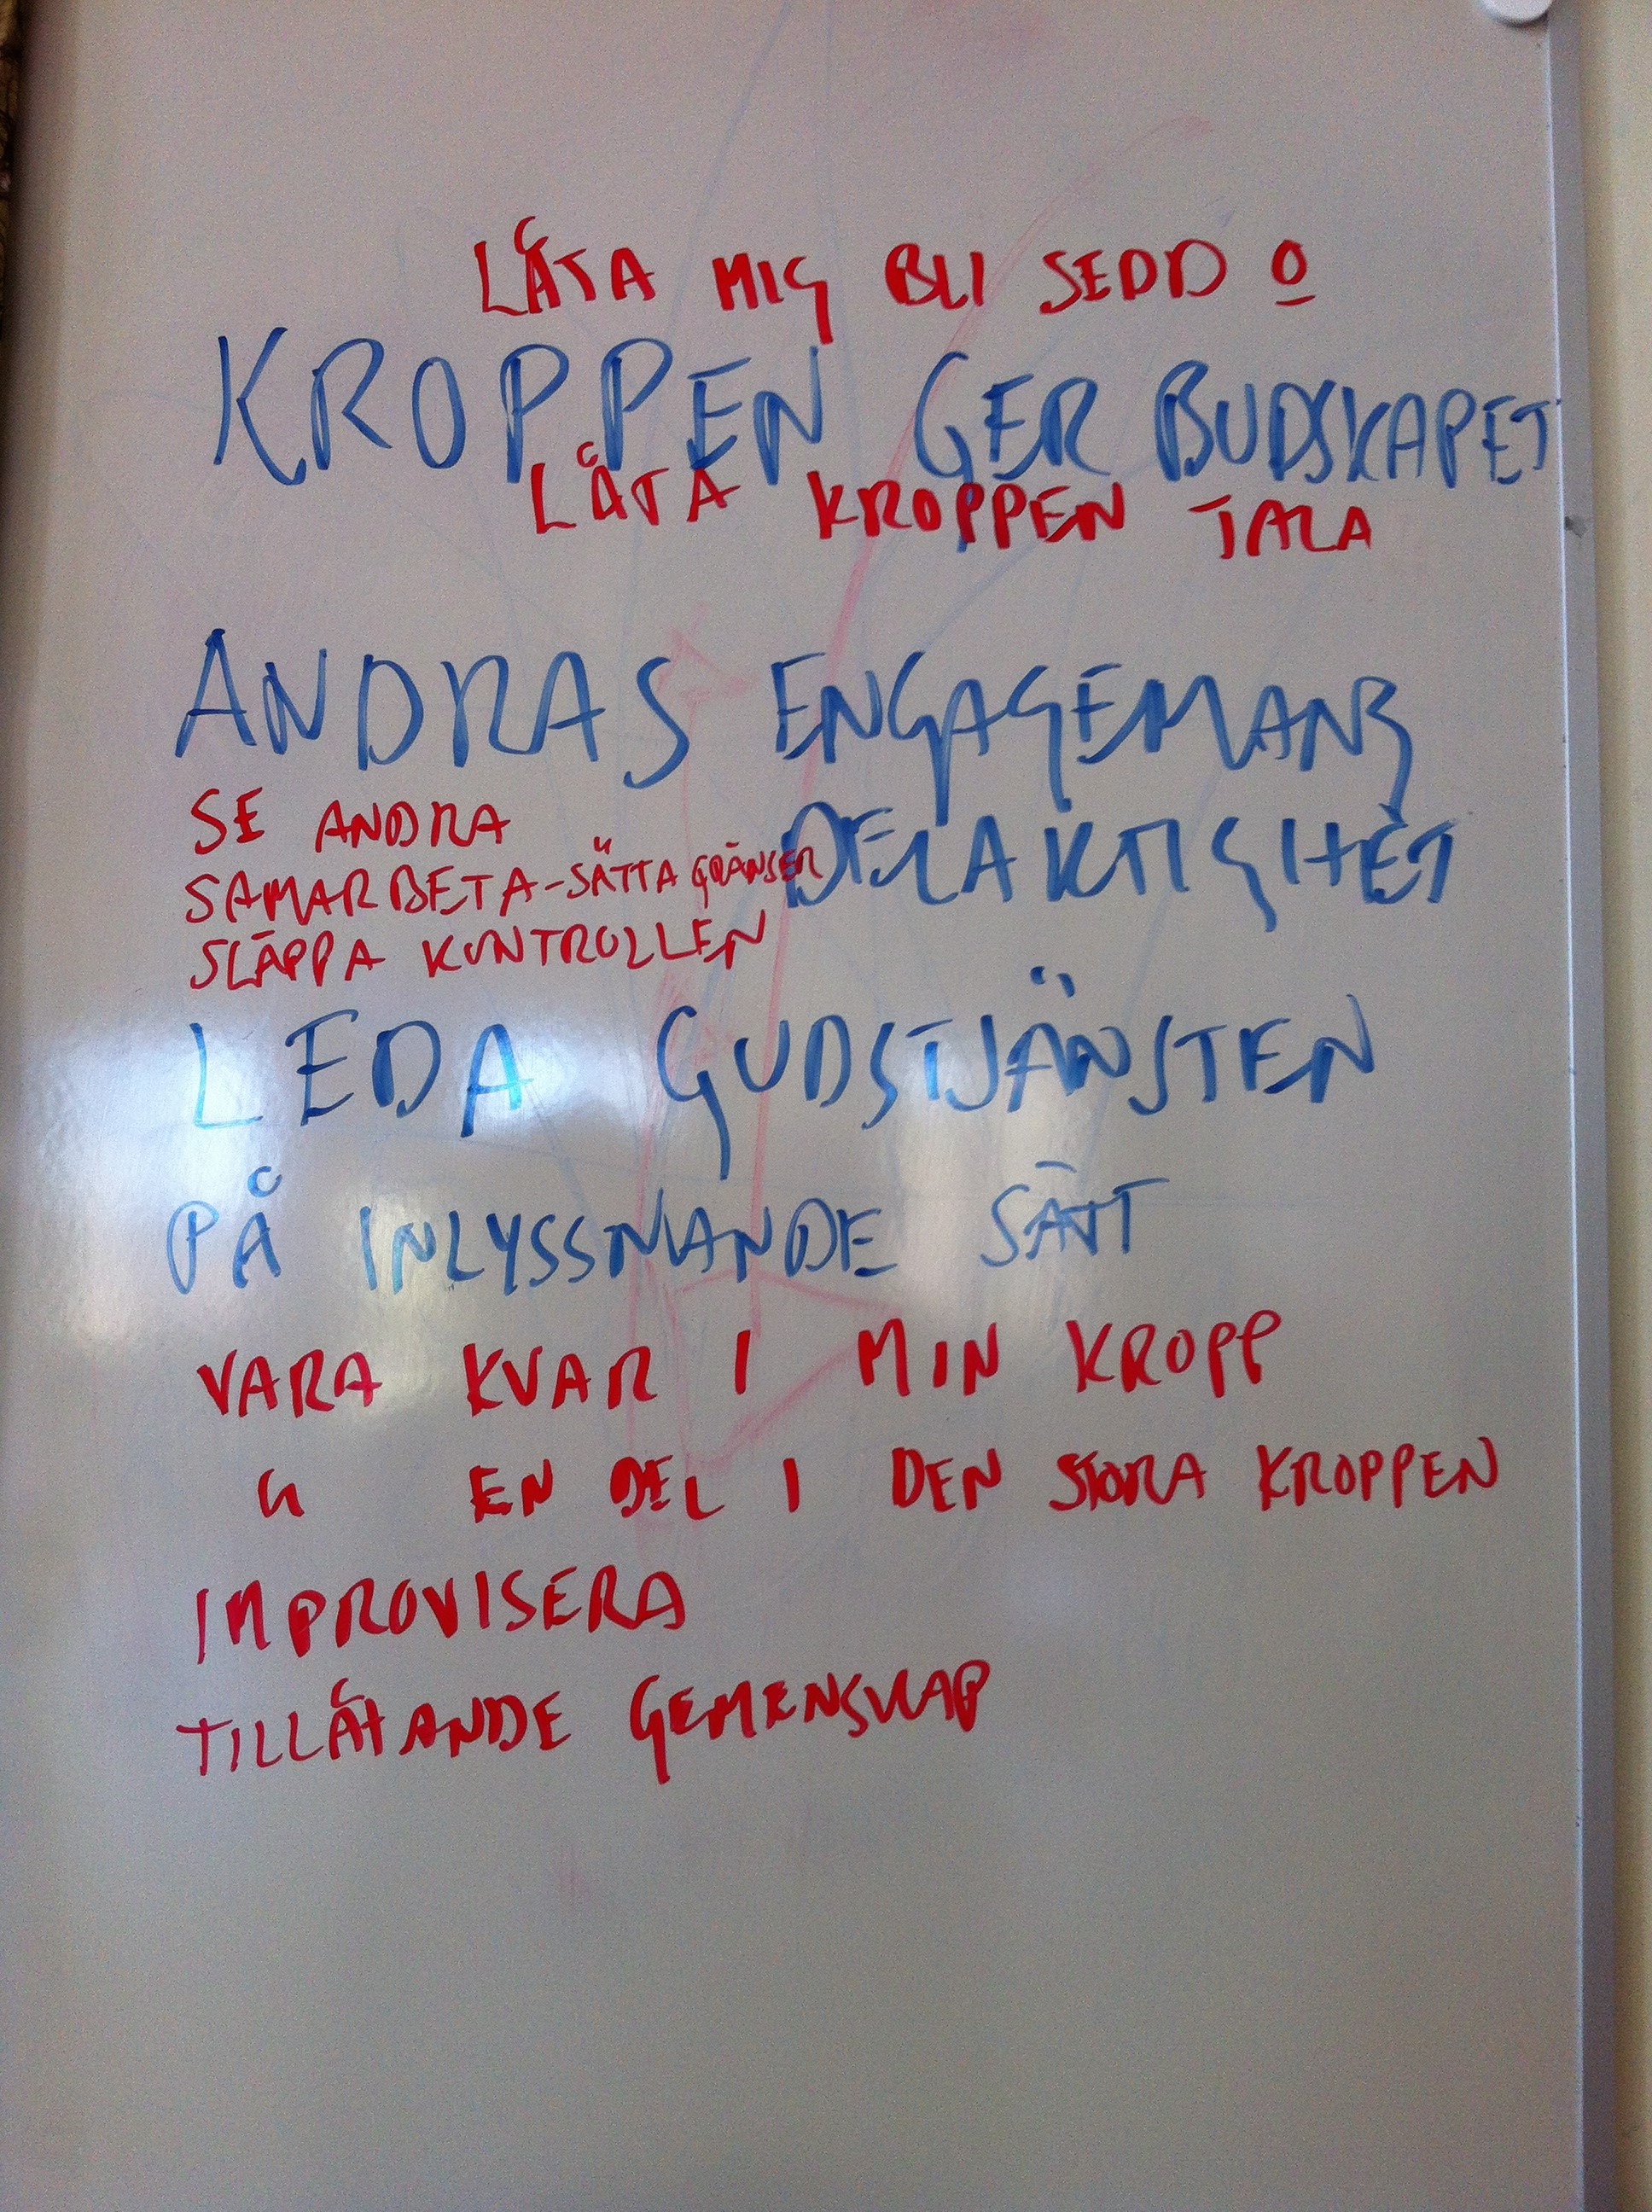 LÅTA MIG BLI SEDD O
KROPPEN GER BUDSKAPET
LÅTA KROPPEN TALA
ANDRAS ENGAGEMANG
DELAKTIGHET
SE ANDRA
SAMARBETA-SÄTTA GRÄNSER
SLÄPPA KONTROLLEN
LEDA GUDSTJÄNSTEN
PÅ INLYSSNANDE SÄTT
VARA KVAR I MIN KROPP
" EN DEL I DEN STORA KROPPEN
IMPROVISERA
TILLÅTANDE GEMENSKAP